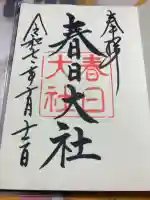 奉拝
春日大社
春日大社
令和七年十月十二日